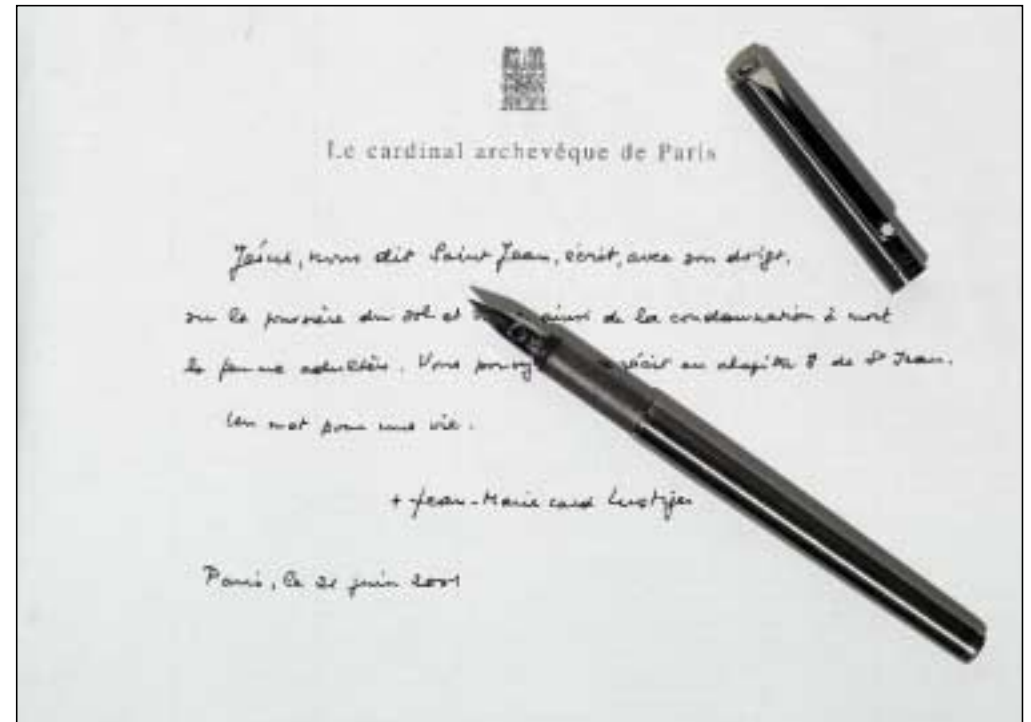 Le cardinal archevêque de Paris
Jésus, nous dit Saint Jean, écrit, avec son doigt,
sur la poussière du sol et de la condamnation à mort
la femme adultère. Vous récit au chapitre 8 de St Jean.
Un mot pour une vie.
+ Jean-Marie card Lustiger
Paris, le juin 2001